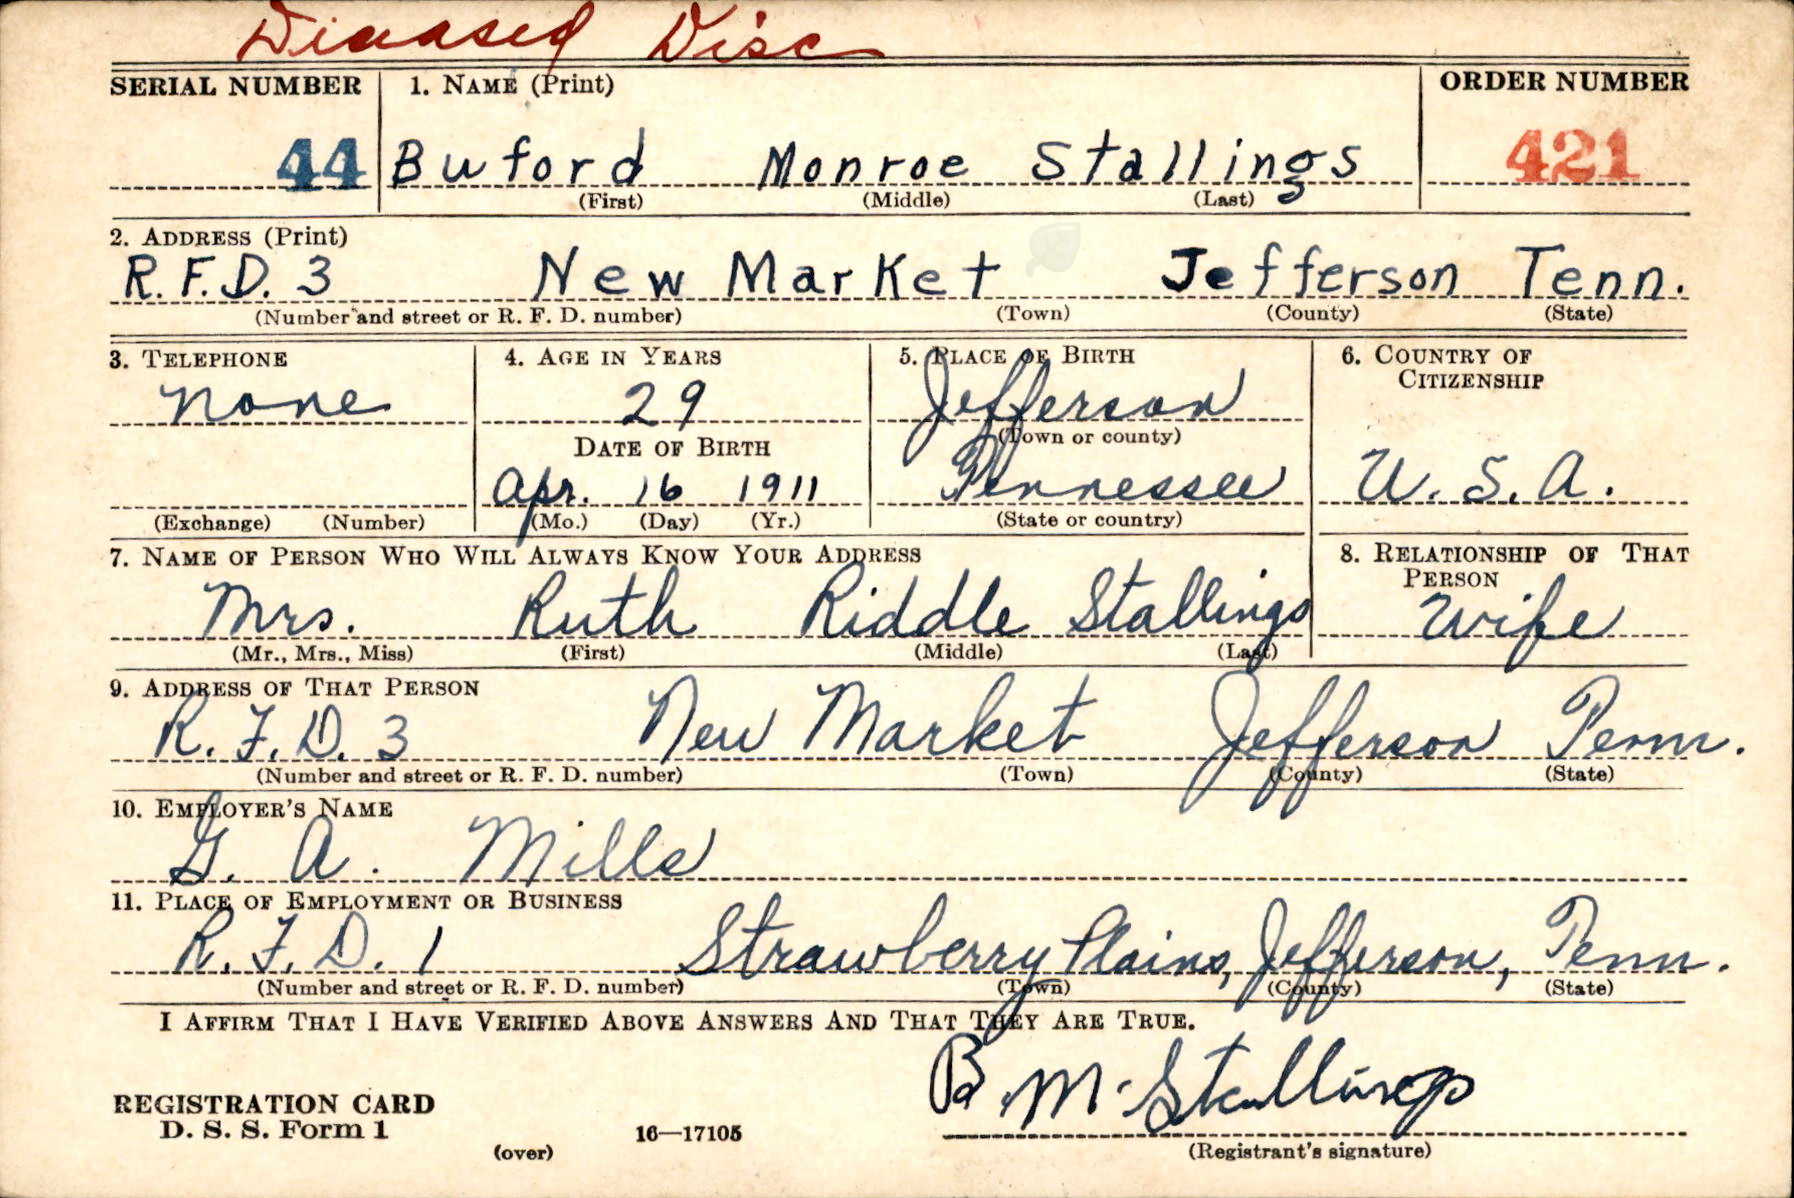 Diceased Disc
SERIAL NUMBER 1. NAME (Print) ORDER NUMBER
44 Buford Monroe Stallings 421
(First) (Middle) (Last)
2. ADDRESS (Print)
R.F.D. 3 New Market Jefferson Tenn.
(Number and street or R. F. D. number) (Town) (County) (State)
3. TELEPHONE 4. AGE IN YEARS 5. PLACE OF BIRTH 6. COUNTRY OF
CITIZENSHIP
none 29 Jefferson
DATE OF BIRTH (Town or county)
Apr. 16 1911 Tennessee U.S.A.
(Exchange) (Number) (Mo.) (Day) (Yr.) (State or country)
7. NAME OF PERSON WHO WILL ALWAYS KNOW YOUR ADDRESS 8. RELATIONSHIP OF THAT
PERSON
Mrs. Ruth Riddle Stallings wife
(Mr., Mrs., Miss) (First) (Middle) (Last)
9. ADDRESS OF THAT PERSON
R.F.D. 3 New Market Jefferson Tenn.
(Number and street or R. F. D. number) (Town) (County) (State)
10. EMPLOYER'S NAME
G. A. Mills
11. PLACE OF EMPLOYMENT OR BUSINESS
R.F.D. 1 Strawberry Plains, Jefferson, Tenn.
(Number and street or R. F. D. number) (Town) (County) (State)
I AFFIRM THAT I HAVE VERIFIED ABOVE ANSWERS AND THAT THEY ARE TRUE.
B. M. Stallings
REGISTRATION CARD
D. S. S. Form 1 16—17105
(over) (Registrant's signature)